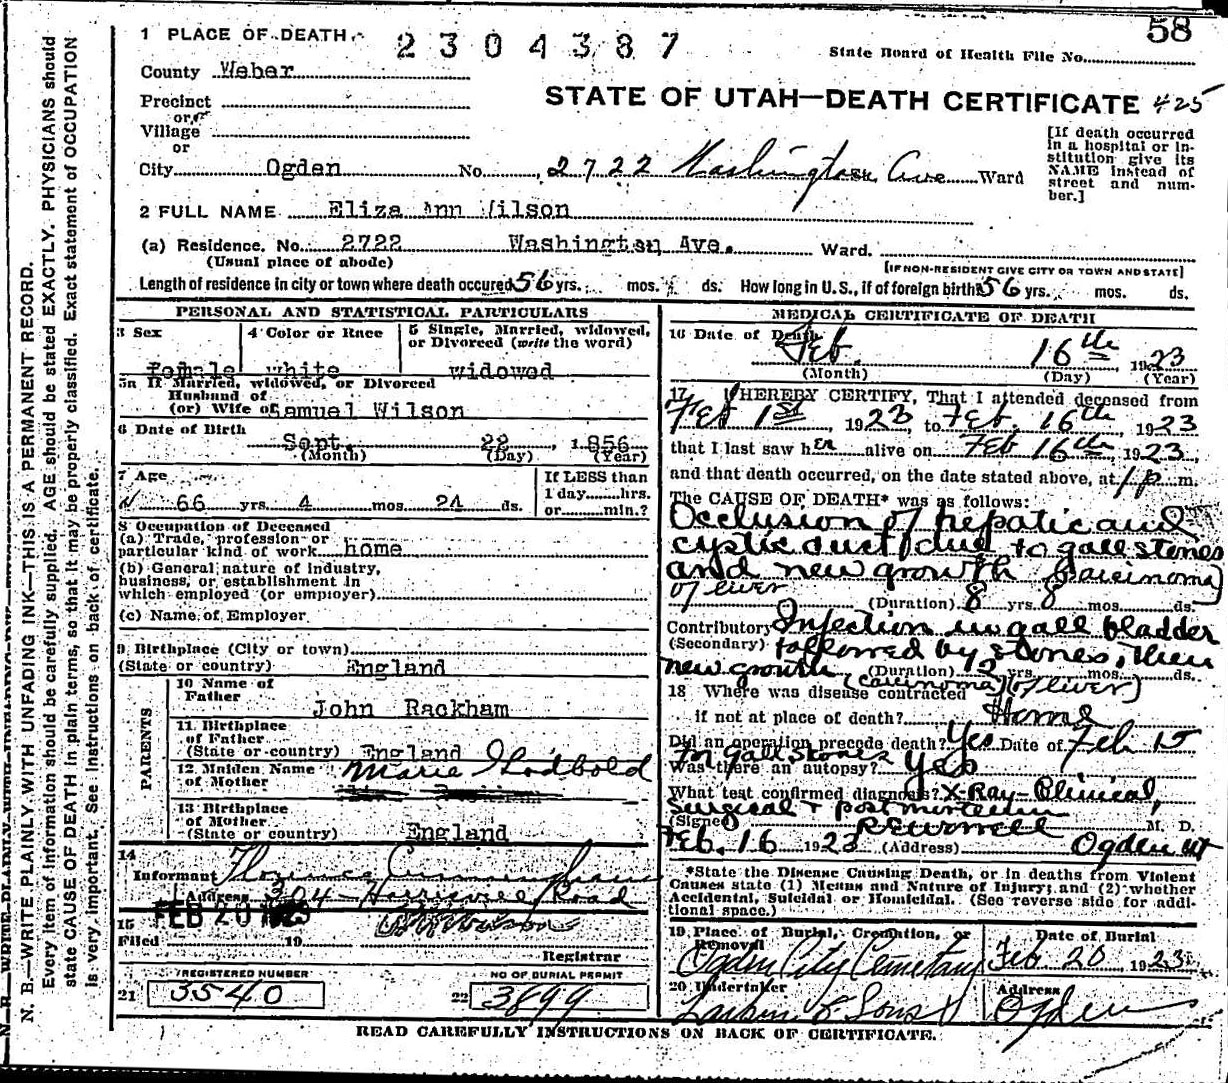 58
1 PLACE OF DEATH 2304387
State Board of Health File No.
County Weber
STATE OF UTAH—DEATH CERTIFICATE 425
Precinct
or
Village
or
City Ogden No. 2722 Washington Ave Ward
[If death occurred
in a hospital or in-
stitution give its
NAME instead of
street and num-
ber.]
2 FULL NAME Eliza Ann Wilson
(a) Residence. No. 2722 Washington Ave. Ward.
(Usual place of abode)
[IF NON-RESIDENT GIVE CITY OR TOWN AND STATE]
Length of residence in city or town where death occured 56 yrs. mos. ds. How long in U.S., if of foreign birth? 56 yrs. mos. ds.
PERSONAL AND STATISTICAL PARTICULARS
3 Sex
female
4 Color or Race
white
5 Single, Married, widowed,
or Divorced (write the word)
widowed
5a If Married, widowed, or Divorced
Husband of
(or) Wife of Samuel Wilson
6 Date of Birth
Sept. 22 1856
(Month) (Day) (Year)
7 Age
66 yrs. 4 mos. 24 ds.
If LESS than
1 day......hrs.
or......min.?
8 Occupation of Deceased
(a) Trade, profession or
particular kind of work home
(b) General nature of industry,
business, or establishment in
which employed (or employer)
(c) Name of Employer
9 Birthplace (City or town)
(State or country) England
PARENTS
10 Name of
Father John Rackham
11. Birthplace
of Father
(State or country) England
12. Maiden Name
of Mother Marie Godbold
13 Birthplace
of Mother
(State or country) England
14
Informant Florence Cunningham
Address 304 Road
15
FEB 20 1923
Filed 19
Registrar
REGISTERED NUMBER
21 3540
NO OF BURIAL PERMIT
22 3899
MEDICAL CERTIFICATE OF DEATH
16 Date of Death
Feb. 16th 1923
(Month) (Day) (Year)
17 I HEREBY CERTIFY, That I attended deceased from
Feb 1st, 1923, to Feb. 16th, 1923
that I last saw her alive on Feb 16th 1923
and that death occurred, on the date stated above, at 1 p m.
The CAUSE OF DEATH* was as follows:
Occlusion of hepatic and
cystic duct (due to gall stones
and new growth (carcinoma)
of liver
(Duration) 8 yrs. 8 mos. ds.
Contributory Infection in gall bladder
(Secondary) followed by stones, then
new growth (Duration) 12 yrs. mos. ds.
(carcinoma) (of liver)
18 Where was disease contracted
if not at place of death? Home
Did an operation precede death? Yes Date of Feb 15
For gall stones
Was there an autopsy? yes
What test confirmed diagnosis? X-Ray-Clinical,
Surgical + postmortem
(Signed) M. D.
Feb. 16 1923 (Address) Ogden Ut
*State the Disease Causing Death, or in deaths from Violent
Causes state (1) Means and Nature of Injury; and (2) whether
Accidental, Suicidal or Homicidal. (See reverse side for addi-
tional space.)
19 Place of Burial, Cremation, or
Removal
Ogden City Cemetary
Date of Burial
Feb 20 1923
20 Undertaker
Larkin & Sons
Address
Ogden
READ CAREFULLY INSTRUCTIONS ON BACK OF CERTIFICATE.
N. B.—WRITE PLAINLY WITH UNFADING INK—THIS IS A PERMANENT RECORD.
Every item of information should be carefully supplied. AGE should be stated EXACTLY. PHYSICIANS should
state CAUSE OF DEATH in plain terms, so that it may be properly classified. Exact statement of OCCUPATION
is very important. See instructions on back of certificate.